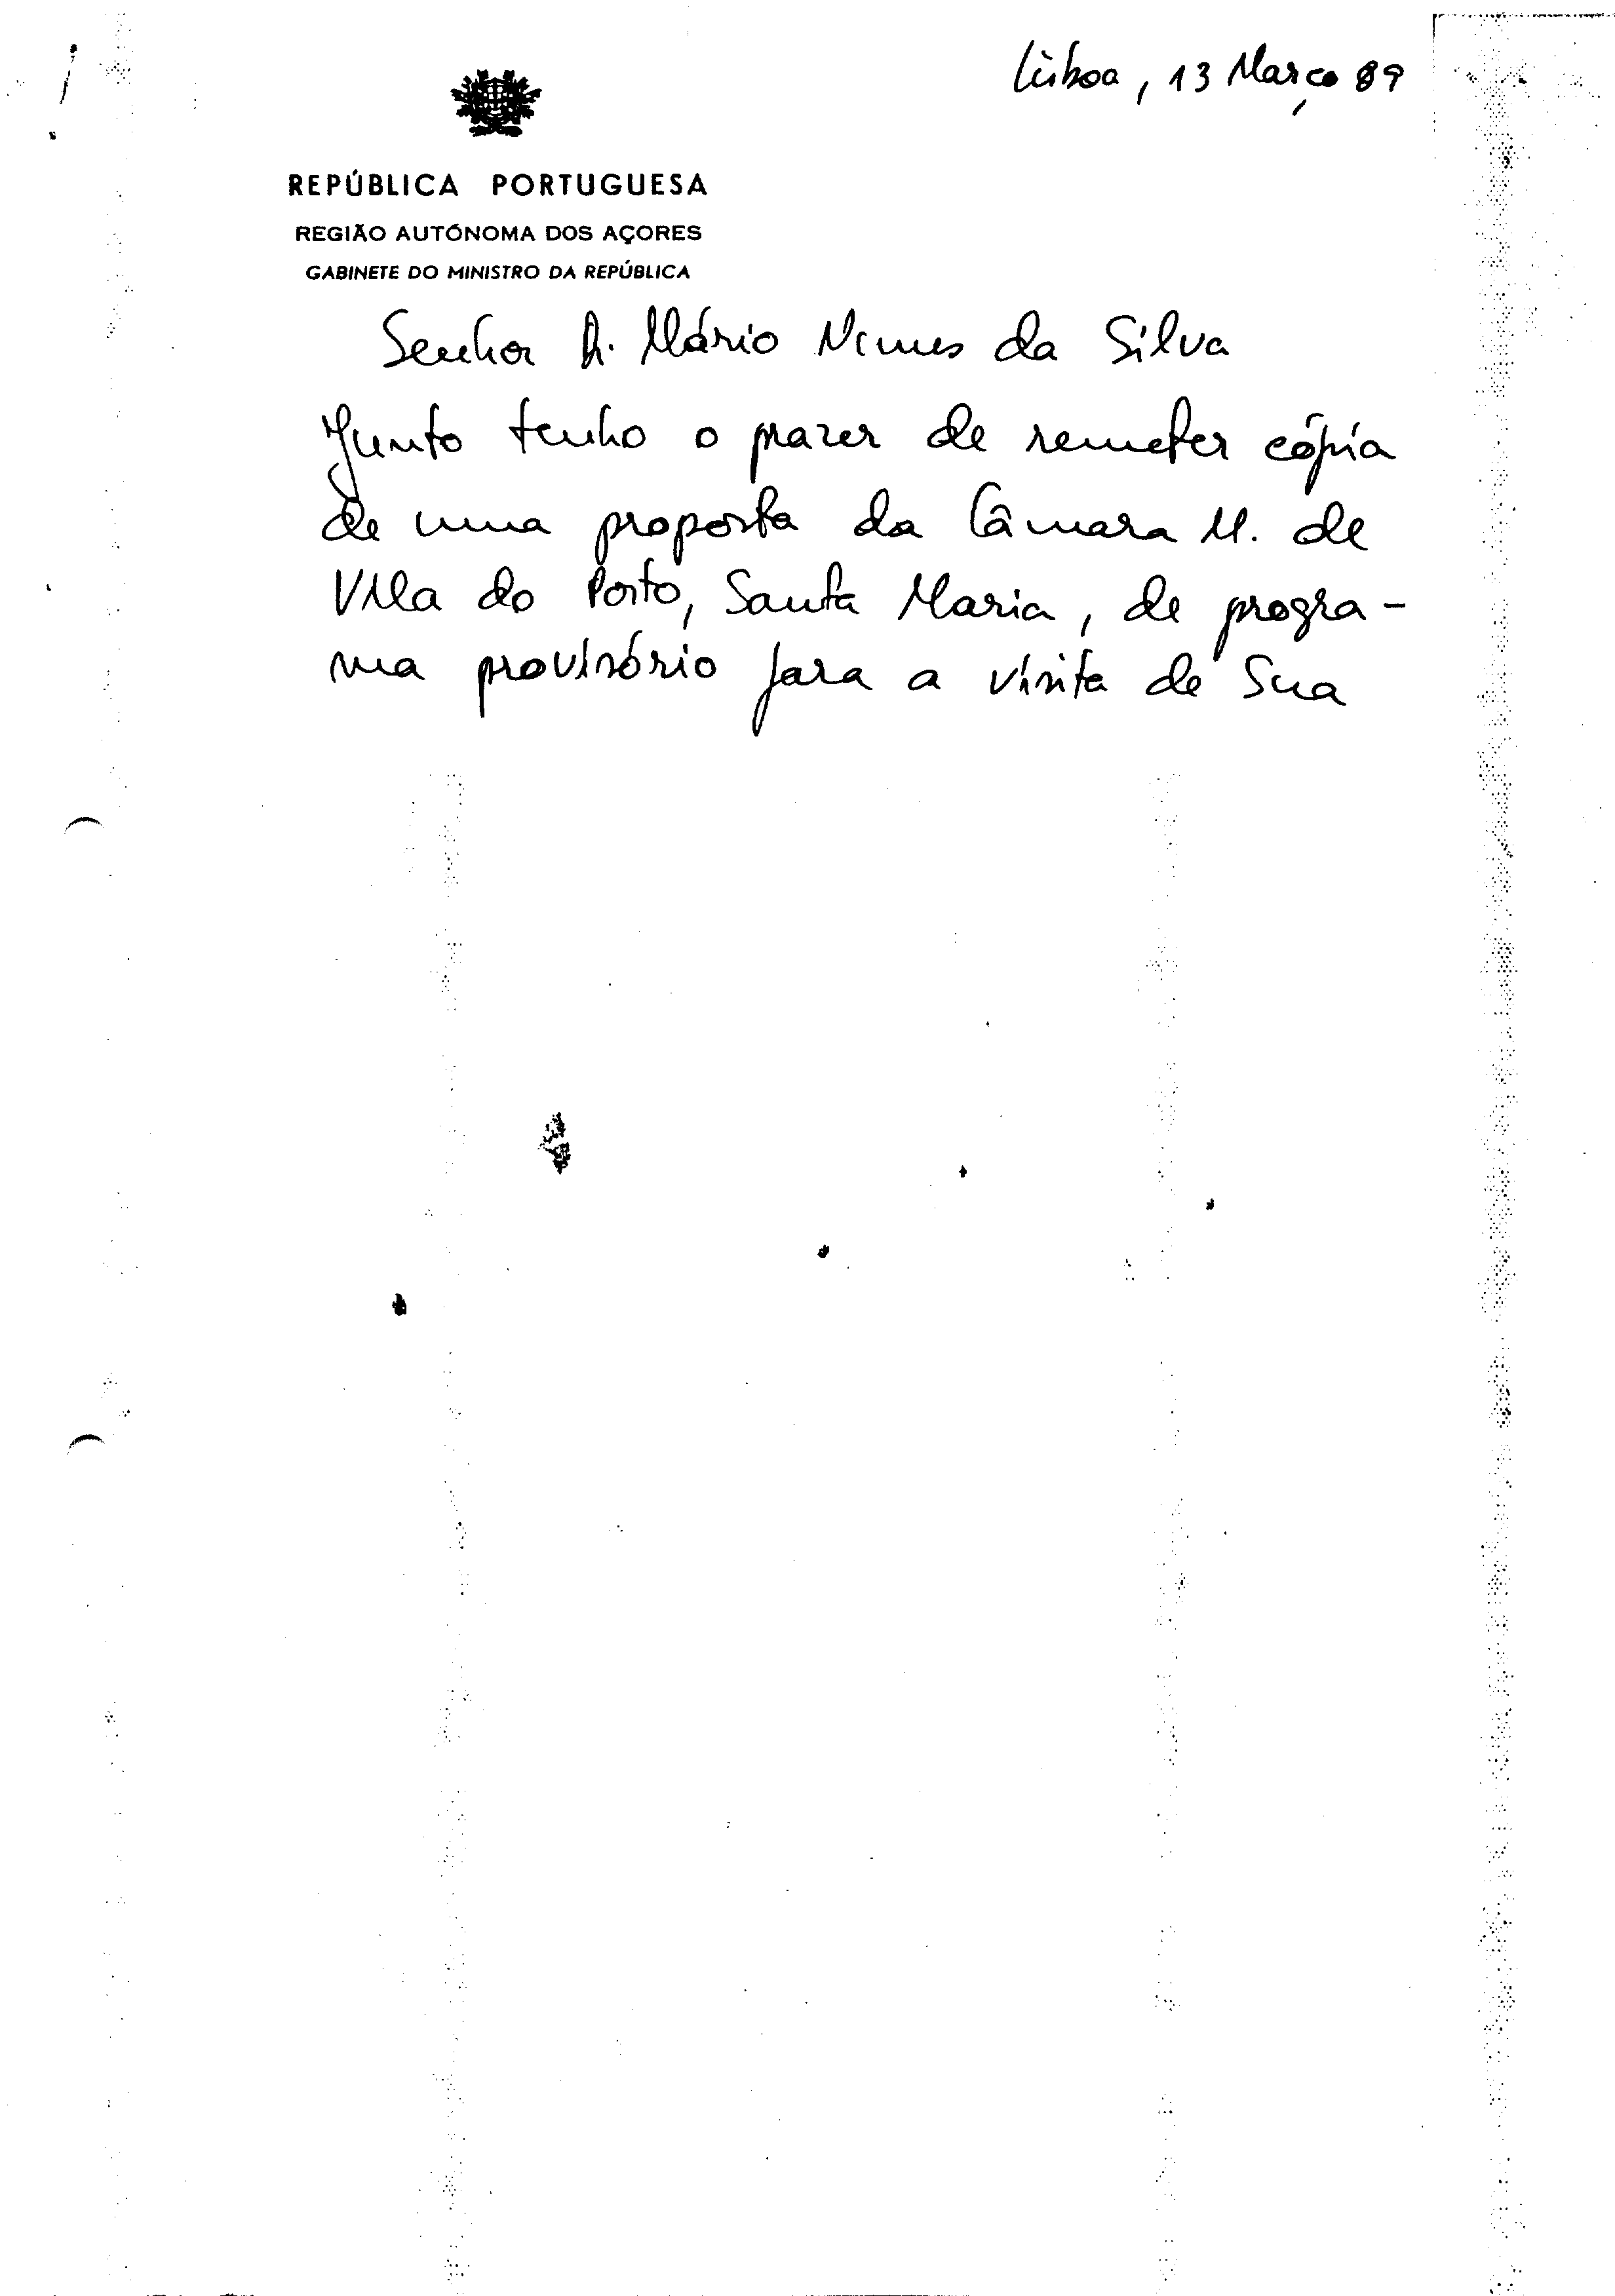 Lisboa, 13 Março 89
REPÚBLICA PORTUGUESA
REGIÃO AUTÓNOMA DOS AÇORES
GABINETE DO MINISTRO DA REPÚBLICA
Senhor Dr. Mário Nunes da Silva
Junto tenho o prazer de remeter cópia
de uma proposta da Câmara M. de
Vila do Porto, Santa Maria, de progra-
ma provisório para a visita de Sua